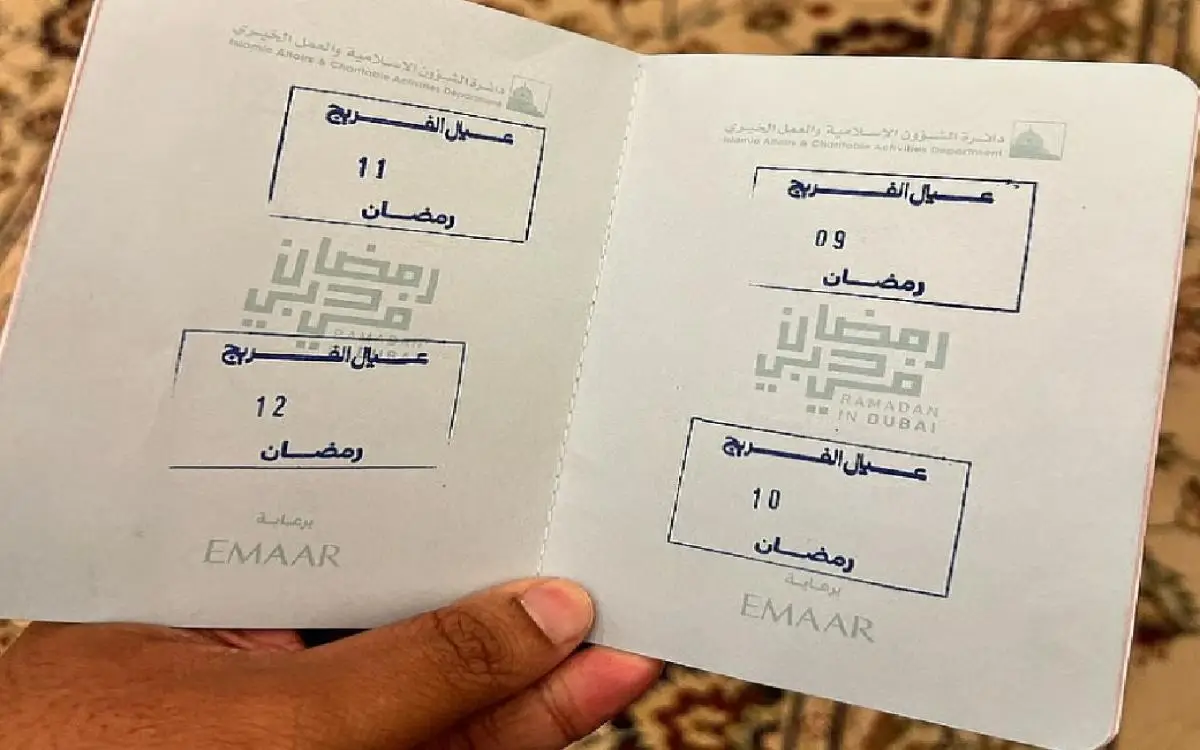 دائرة الشؤون الإسلامية والعمل الخيري
Islamic Affairs & Charitable Activities Department
عيال الفريج
09
رمضان
رمضان
في دبي
RAMADAN
IN DUBAI
عيال الفريج
10
رمضان
برعاية
EMAAR
دائرة الشؤون الإسلامية والعمل الخيري
Islamic Affairs & Charitable Activities Department
عيال الفريج
11
رمضان
رمضان
في دبي
RAMADAN
عيال الفريج
12
رمضان
برعاية
EMAAR